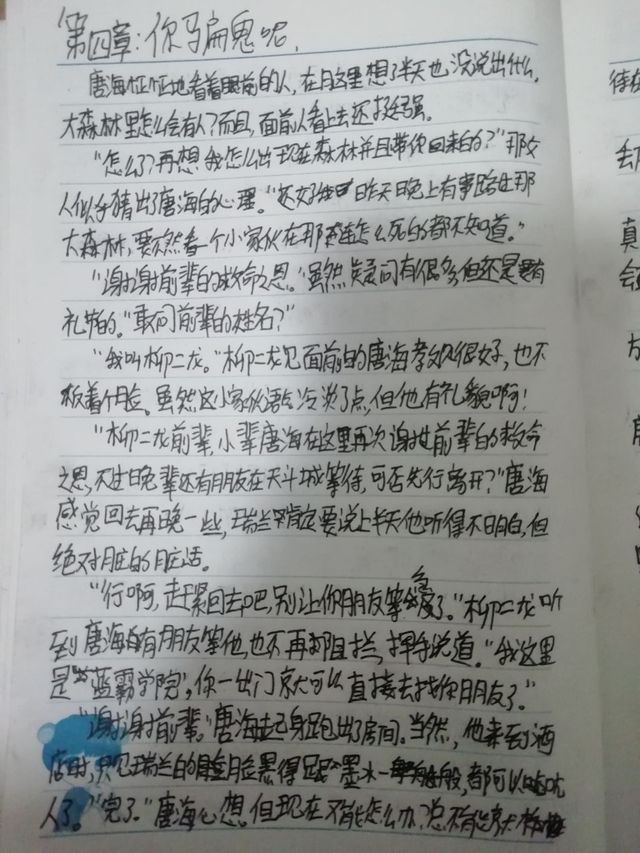 第四章:你马扁鬼呢.
唐海怔怔地看着眼前的人,在月这里想了半天也没说出什么.
大森林里怎么会有人?而且,面前人看上去还挺强。
"怎么了?再想我怎么出现在森林并且带你回来的?"那女
人似乎猜出了唐海的心理。"还好我昨天晚上有事路往那
大森林,要不然看一个小家伙在那连怎么死的都不知道。"
"谢谢前辈的救命之恩。"虽然疑问有很多,但还是要有
礼节的。"敢问前辈的姓名?"
"我叫柳二龙。"柳二龙见面前的唐海教很好,也不
板着个脸。虽然这小家伙语气冷淡了点,但他有礼貌啊!
"柳二龙前辈,小辈唐海在这里再次谢过前辈的救命
之恩,不过晚辈还有朋友在天斗城等待,可否先行离开?"唐海
感觉回去再晚一些,瑞兰肯定要说上半天他听得不明白,但
绝对脏的脏话。
"行啊,赶紧回去吧,别让你朋友等急了。"柳二龙听
到唐海有朋友等他,也不再阻拦,挥手说道。"我这里
是"蓝霸学院",你一出门京尤可以直接去找你朋友了。"
"谢谢前辈。"唐海起身跑出了房间。当然,他来到酒
店时,只见瑞兰的脸黑得跟墨水一般,都可以吃
人了。"完了。"唐海心想。但现在又能怎么办?总不能
待在
丢
真
会
方